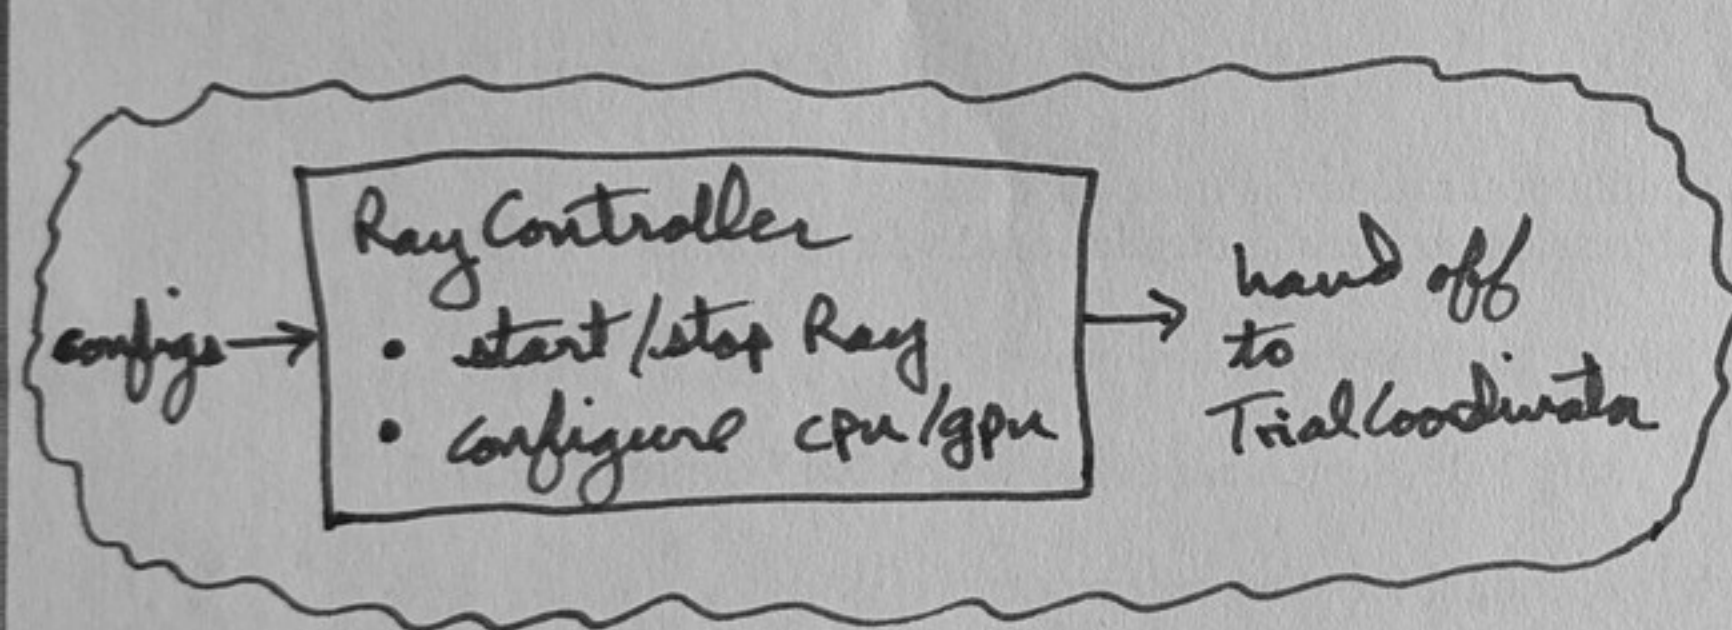 configs
RayController
• start/stop Ray
• configure cpu/gpu
hand off
to
TrialCoordinator